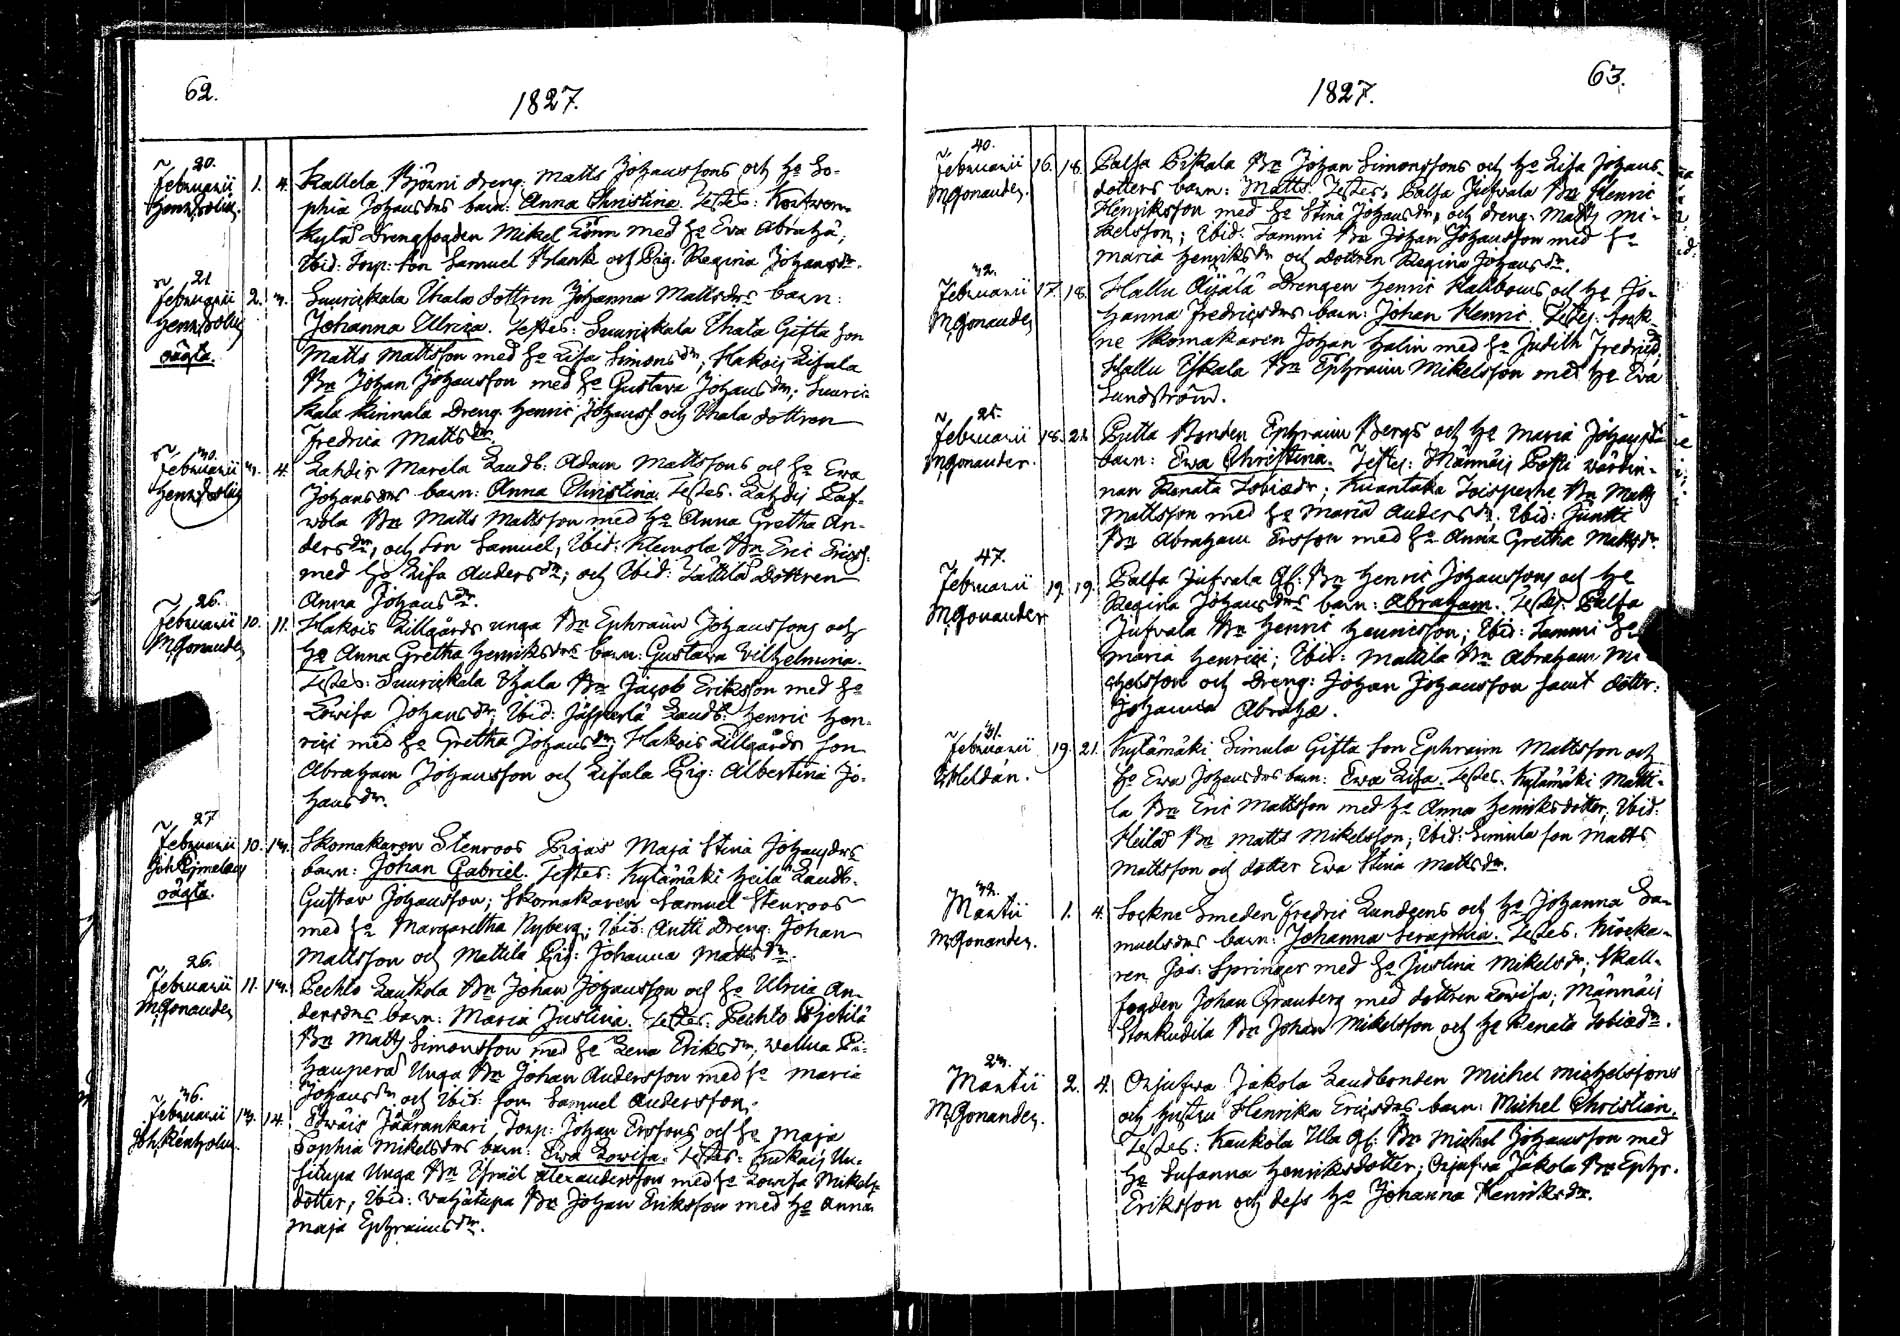 62.
1827.
20.
Februarii 1. 4. Kallela Björni dreng. Matts Johanssons och h. So-
phia Johansdrs barn: Anna Christina. Testes:
kylä Drengfogden Mikel Lönn med h. Eva Abrahä;
Ibid: Torp: son Samuel Blank och Pig. Regina Johansdr.
21
Februarii 2. 3. Suurikkala Uhala dottren Johanna Mattsdrs barn:
oägta.
Johanna Ulrica. Testes: Suurikkala Uhala Gifta son
Matts Mattsson med h. Lisa Simonsdr; Hakois Eifala
Bn Johan Johansson med h. Gustava Johansdr; Suuric-
kala Kinnala Dreng. Henric Johanss. och Uhala dottren
Fredrica Mattsdr.
30.
Februarii 3. 4. Lahdis Marela Landb: Adam Mattssons och h. Eva
Johansdrs barn: Anna Christina. Testes. Lahdis Paf-
wola Bn Matts Mattsson med h. Anna Gretha An-
dersdr, och son Samuel, Ibid: Klemola Bn Eric Ericss:
med h. Lisa Andersdr; och Ibid: Tättilä Dottren
Anna Johansdr.
26.
Februarii 10. 11. Hakois Lillgårds unga Bn Ephraim Johanssons och
M. Gonander
h. Anna Gretha Henriksdrs barn: Gustava Vilhelmina.
Testes: Suurickala Uhala Bn Jacob Eriksson med h.
Lowisa Johansdr; Ibid: Jäsperlä Landb: Henric Hen-
rici med h. Gretha Johansdr; Hakois Lillgårds son
Abraham Johansson och Eifala Pig: Albertina Jo-
hansdr.
27
Februarii 10. 13. Skomakaren Stenroos Pigas Maja Stina Johansdrs
oägta.
barn: Johan Gabriel. Testes: Kylämäki Heilä Landb.
Gustav Johansson; Skomakaren Samuel Stenroos
med h. Margaretha Nyberg; Ibid: Antti Dreng: Johan
Mattsson och Mattila Pig: Johanna Mattsdr.
26.
Februarii 11. 13. Pechto Laukola Bn Johan Johansson och h. Ulrica An-
M. Gonander
dersdrs barn: Maria Justina. Testes: Pechto Pjetilä
Bn Matts Simonsson med h. Lena Eriksdr; Wellua Pi-
haperä Unga Bn Johan Andersson med h. Maria
Johansdr och Ibid: son Samuel Andersson.
36.
Februarii 13. 14. Edwäis Jäärankari Torp: Johan Erssons och h. Maja
Sophia Mikelsdrs barn: Ewa Lowisa. Testes: Kukais Uu-
situpa Unga Bn Israël Alexandersson med h. Lowisa Mikels-
dotter, Ibid: Wahätupa Bn Johan Eriksson med h. Anna
Maja Ephraimsdr.
63.
1827.
40.
Februarii 16. 18. Palsa Pikala Bn Johan Simonssons och h. Lisa Johans-
M. Gonander.
dotters barn: Matts. Testes, Palsa Jufvala Bn Henric
Henriksson med h. Stina Johansdr, och dreng. Matts Mi-
kelsson; Ibid: Sammi Bn Johan Johansson med h.
Maria Henriksdr och dottren Regina Johansdr.
32.
Februarii 17. 18. Hallu Äijälä Drengen Henric Kalibows och h. Jo-
M. Gonander
hanna Fredricsdrs barn: Johan Henric. Testes: Sock-
ne Skomakaren Johan Halin med h. Judith Fredricsd,
Hallu Yskala Bn Ephraim Mikelsson med h. Eva
Sundström.
25.
Februarii 18. 21. Putta Bonden Ephraim Bergs och h. Maria Johansdrs
M. Gonander.
barn: Ewa Christina. Testes: Männäis Posti wärdin-
nan Renata Tobiædr; Kuantaka Toisperhe Bn Matts
Mattsson med h. Maria Andersdr. Ibid: Juntti
Bn Abraham Ersson med h. Anna Gretha Mattsdr.
47.
Februarii 19. 19. Palsa Jufvala Gl: Bn Henric Johanssons och h.
M. Gonander
Regina Johansdrs barn: Abraham. Testes. Palsa
Jufvala Bn Henric Henricsson; Ibid: Sammi h.
Maria Henrici; Ibid: Mattila Bn Abraham Mi-
chelsson och Dreng: Johan Johansson samt dottr:
Johanna Abrahæ.
31.
Februarii 19. 21. Kylämäki Simula Gifta son Ephraim Mattsson och
h. Ewa Johansdrs barn: Ewa Lisa. Testes. Kylämäki Matti-
la Bn Eric Mattsson med h. Anna Henriksdotter, Ibid:
Heilä Bn Matts Mikelsson; Ibid: Simula son Matts
Mattsson och dotter Ewa Stina Mattsdr.
32.
Martii 1. 4. Sockne Smeden Fredric Lundgens och h. Johanna Sa-
M. Gonander.
muelsdrs barn: Johanna Seraphia. Testes:
ren Jos: Springer med h. Justina Mikelsdr; Skall-
fogden Johan Granberg med dottren Lowisa; Männäis
Storkudila Bn Johan Mikelsson och h. Renata Tobiædr.
23.
Martii 2. 4. Orjufwa Jakola Landbonden Michel Michelssons
M. Gonander.
och hustru Henrika Ericsdrs barn: Michel Christian.
Testes: Kaukola Ula Gl: Bn Michel Johansson med
h. Susanna Henriksdotter; Orjufwa Jakola Bn Ephr.
Eriksson och dess h. Johanna Henriksdr.